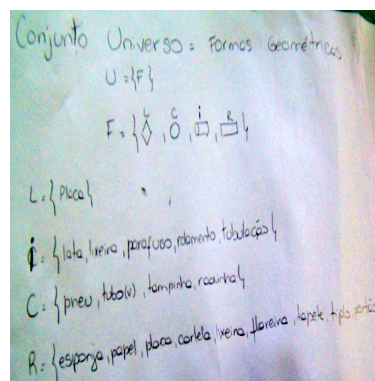 Conjunto Universo = Formas Geométricas
U = {F}
L C i R
F = { , , , }
L = {Placa}
i = {lata, lixeira, parafuso, rolamento, tubulação}
C = {pneu, tubo(v), tampinha, rodinha}
R = {esponja, papel, placa, cartela, lixeira, floreira, tapete, tijolo, portão